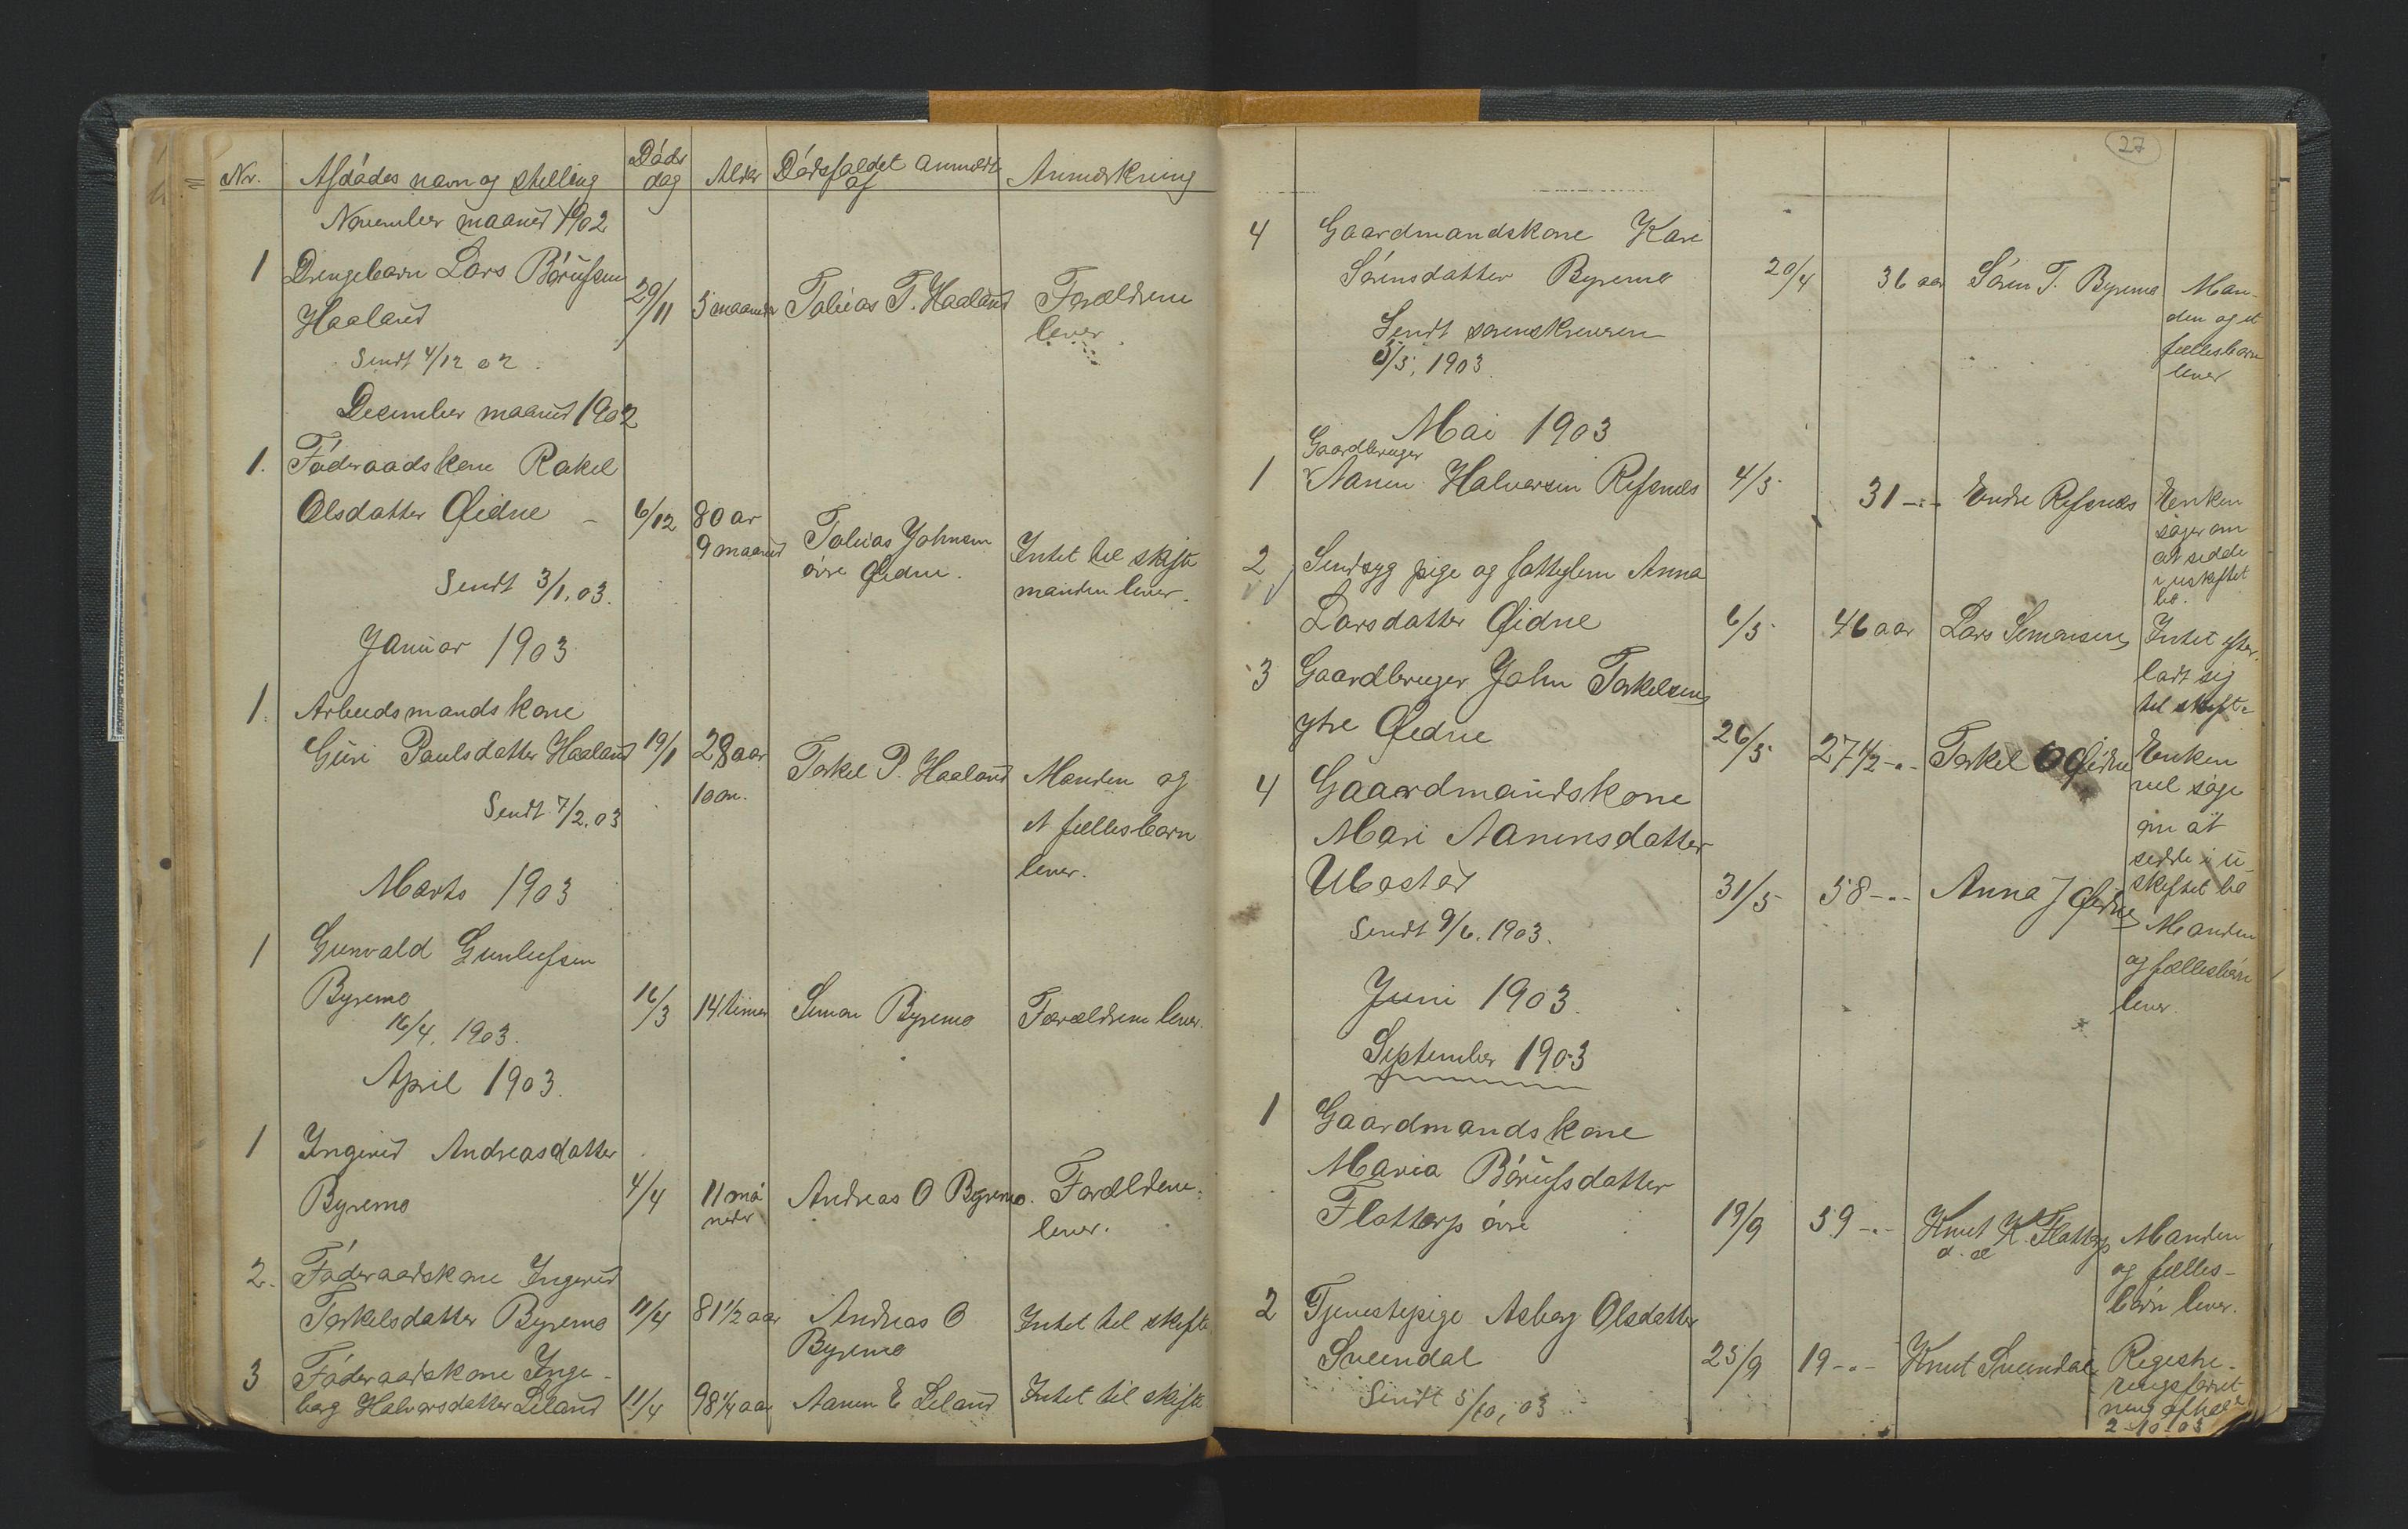 Nr. Afdødes navn og stilling Døds dag Alder Dødsfaldet anmeldt af Anmærkning
November maaned 1902
1 Drengebarn Lars Børufsen
Haaland 29/11 5 maaneder Tobias T. Haaland Forældrene
lever
Sendt 4/12 02.
December maaned 1902
1. Føderaadskone Rakel
Olsdatter Øidne - 6/12 80 ar
9 maaned Tobias Johnsen
øvre Øidne. Intet til skifte
manden lever.
Sendt 3/1.03.
Januar 1903
1. Arbeidsmandskone
Guri Paulsdatter Haaland 19/1 28 aar
10 m. Torkel P. Haaland Manden og
et fællesbarn
lever.
Sendt 7/2.03
Marts 1903
1 Gunvald Gunlufsen
Byremo 16/3 14 timer Simon Byremo Forældrene lever.
16/4. 1903.
April 1903.
1 Ingerid Andreasdatter
Byremo 4/4 11 må
neder Andreas O Byremo. Forældrene
lever.
2. Føderaadskone Ingerid
Torkelsdatter Byremo 11/4 81 1/2 aar Andreas O
Byremo Intet til skifte
3 Føderaadskone Inge-
borg Halvorsdatter Leland 11/4 98 1/4 aar Aanen E Leland Intet til skifte
27
4 Gaardmandskone Kari
Sørensdatter Byremo 20/4 36 aar Søren T. Byremo Man-
den og et
fællesbarn
lever
Sendt sorenskriveren
5/5, 1903.
Mai 1903
Gaardbruger
1 Aanen Halvorsen Refsnes 4/5 31 -"- Endre Refsnes Enken
søger om
at sidde
i uskiftet
bo.
2 Sindsyg pige og fattiglem Anna
Larsdatter Øidne 6/5 46 aar Lars Simonsen Intet efter-
ladt sig
til skifte
3 Gaardbruger John Torkelsen
ytre Øidne 26/5 27 1/2 -"- Torkel O Øidne Enken
vil søge
om at
sidde i u
skiftet bo
4 Gaardmandskone
Mari Aanensdatter
Ubostad 31/5 58 -"- Anna J Øidne Manden
og fællesbørn
lever.
Sendt 9/6. 1903.
Juni 1903.
September 1903
1 Gaardmandskone
Maria Børufsdatter
Flottorp øvre 19/9 59 -"- Knut K. Flottorp
d. æ Manden
og fælles-
børn lever.
2 Tjenestepige Asborg Olsdatter
Sveindal 25/9 19 -"- Knut Sveindal Registre-
ringsforret-
ning afholdt
2-10-03
Sendt 5/10, 03